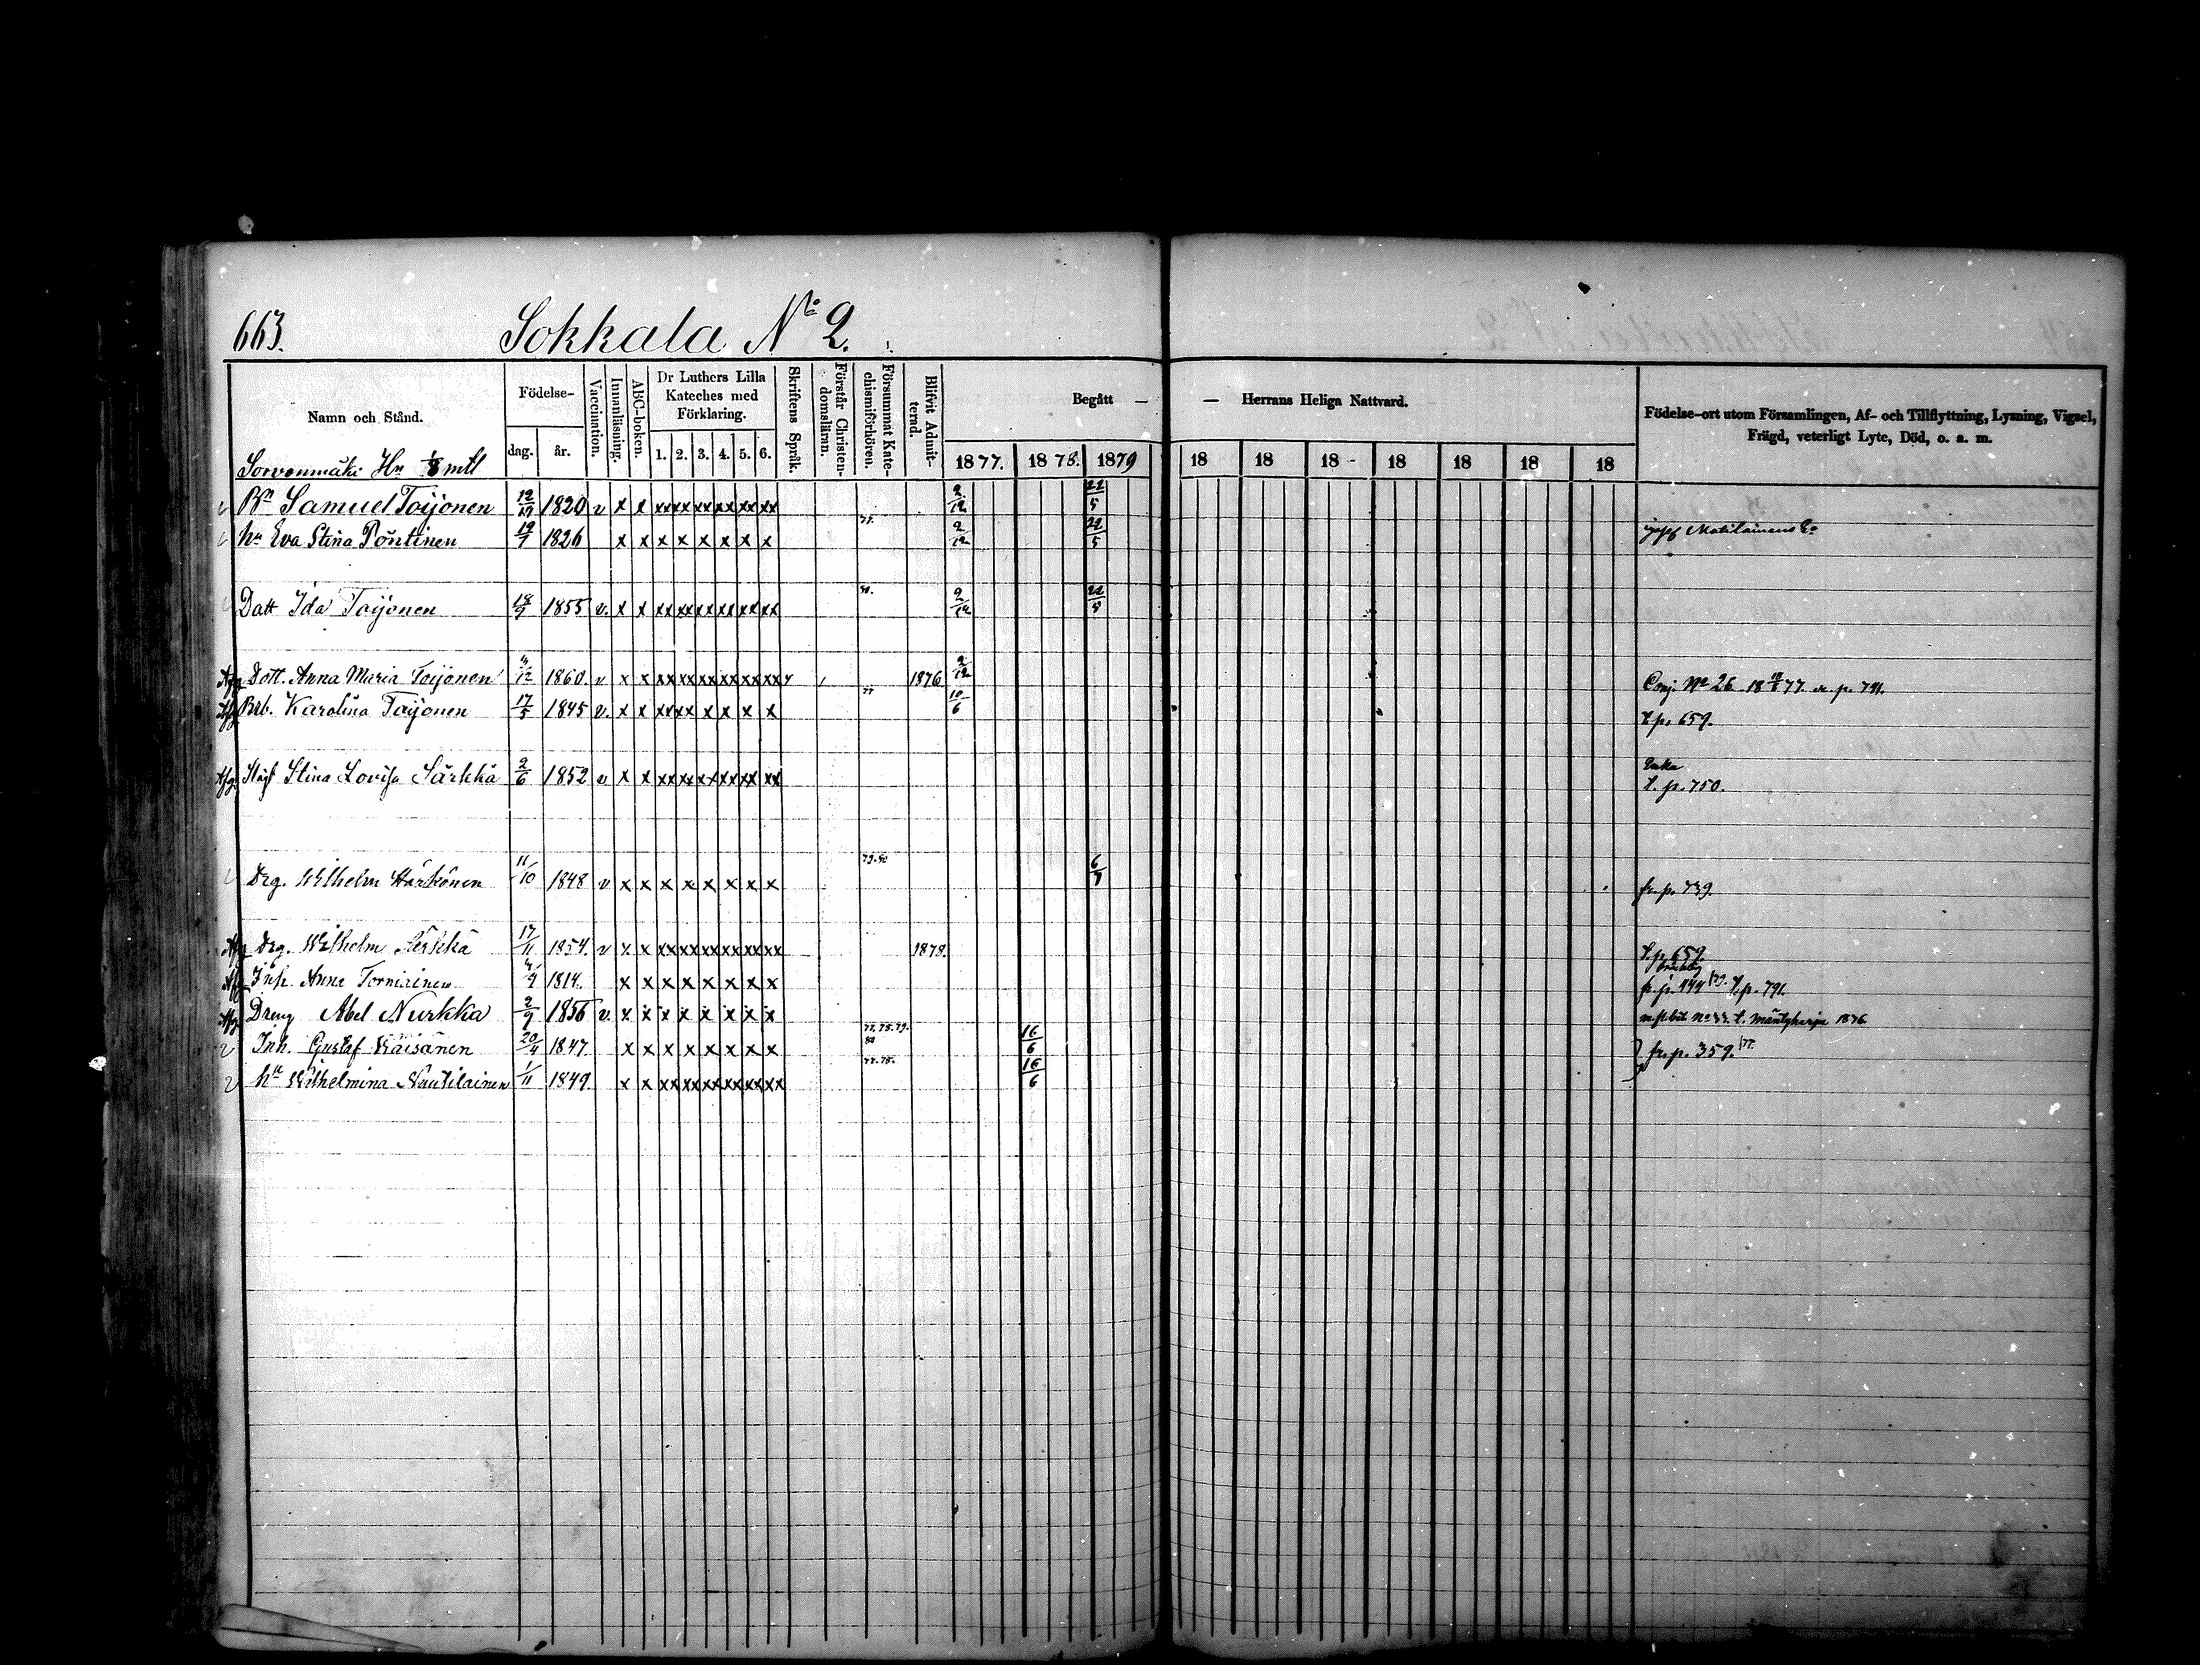 663.
Sokkala No 2.
Namn och Stånd.
Födelse-
dag. år.
Vaccination.
Innanläsning.
ABC-boken.
Dr Luthers Lilla Kateches med Förklaring.
1. 2. 3. 4. 5. 6.
Skriftens Språk.
Förstår Christendomsläran.
Försummat Katechismiförhören.
Blifvit Admitterad.
Begått — — Herrans Heliga Nattvard.
1877. 1878. 1879 18 18 18 18 18 18 18
Födelse-ort utom Församlingen, Af- och Tillflyttning, Lysning, Vigsel,
Frägd, veterligt Lyte, Död, o. a. m.
Sorvonmäki Hn 1/8 mtl
Bn Samuel Toijonen 1820 v x x xx xx xx xx xx xx 2/12 22/5
hu Eva Stina Pöntinen 19/7 1826 x x x x x x x x 77. 2/12 22/5
Dott Ida Toijonen 18/9 1855 v. x x xx xx xx xx xx xx 2/12 22/5
Afg Dott. Anna Maria Toijonen 4/12 1860. v x x xx xx xx xx xx xx 1876 2/12 No 26 77. p. 791.
Afg Brb. Karolina Toijonen 17/5 1845 v. x x xx xx x x x x 77 10/6 t. p. 659.
Afg Stina Lovisa Särkkä 2/6 1852 v x x xx xx xx xx xx xx t. p. 750.
Drg. Wilhelm Härkönen 11/10 1848 v x x x x x x x x 79.80 6/7 fr. p. 739.
Afg Drg. Wilhelm Särkkä 17/11 1854. v x x xx xx xx xx xx xx 1878. t. p. 659.
Afg Inh. Anna Torniainen 4/4 1814. x x x x x x x x fr. p. 444 t. p. 791.
Afg Dreng Abel Nurkka 2/9 1856 v. x x x x x x x x t. Mäntyharju 1876
Inh. Gustaf Väisänen 20/4 1847. x x x x x x x x 77.78.79. 80 16/6 fr. p. 359. 77.
hu Wilhelmina Nuutilainen 1/11 1849. x x xx xx xx xx xx xx 77.78. 16/6